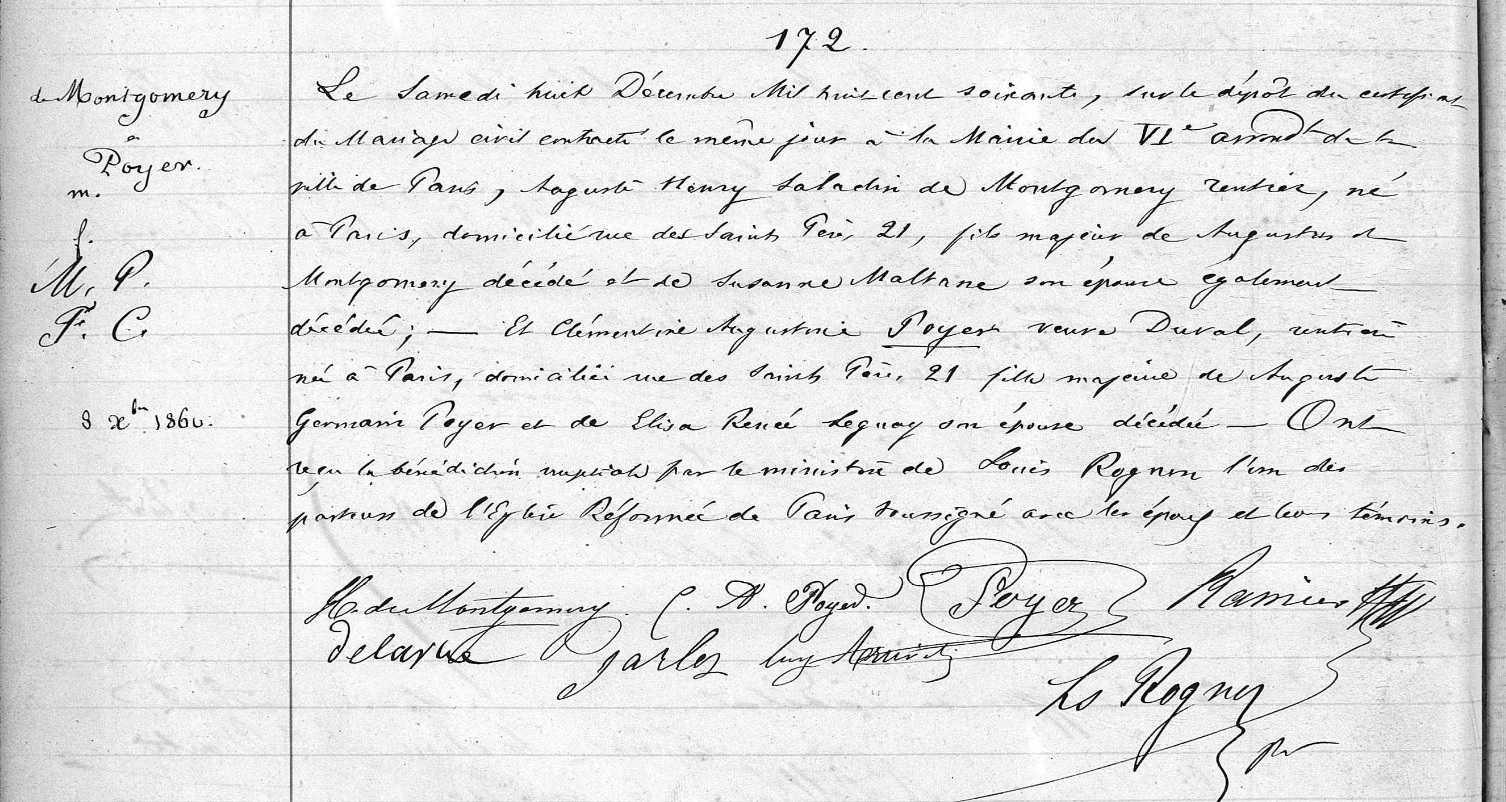 172.
de Montgomery
à
Poyer.
m.
f.
M. P.
F. C.
8 Xbre 1860.
Le Samedi huit Décembre Mil huit cent soixante, sur le dépôt du certificat
du Mariage civil contracté le même jour à la Mairie du VIe arrondt de la
ville de Paris, Auguste Henry Saladin de Montgomery rentier, né
à Paris, domicilié rue des Saints Pères, 21, fils majeur de Augustus de
Montgomery décédé et de Susanne son épouse également
décédée; — Et Clémentine Augustine Poyer veuve Duval, rentière
née à Paris, domiciliée rue des Saints Pères, 21 fille majeure de Auguste
Germain Poyer et de Elisa Renée Leguay son épouse décédée — Ont
reçu la bénédiction nuptiale par le ministère de Louis Rognon l'un des
pasteurs de l'Eglise Réformée de Paris soussigné avec les époux et leurs témoins.
H. de Montgomery. C. A. Poyer. Poyer Ramier
Delarue
Ls Rognon
pr